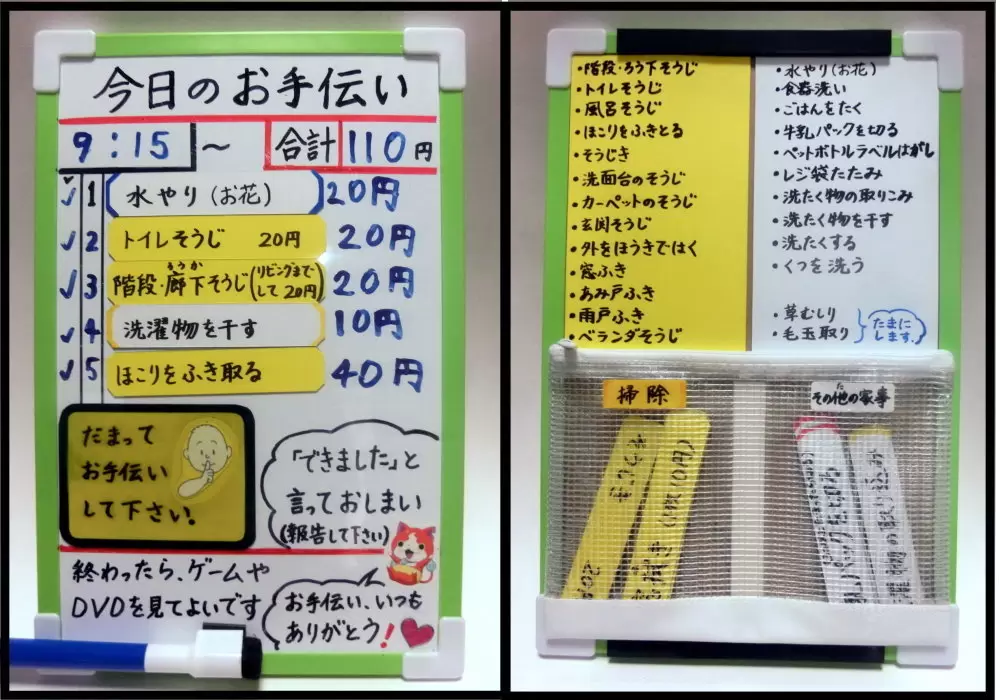 今日のお手伝い
9:15 ～ 合計 110円
✓ 1 水やり(お花) 20円
✓ 2 トイレそうじ 20円 20円
✓ 3 階段・廊下そうじ(リビングまでして20円) 20円
ろうか
✓ 4 洗濯物を干す 10円
✓ 5 ほこりをふき取る 40円
だまって
お手伝い
して下さい。
「できました」と
言っておしまい
(報告して下さい)
終わったら、ゲームや
DVDを見てよいです
お手伝い、いつも
ありがとう!
・階段・ろう下そうじ
・トイレそうじ
・風呂そうじ
・ほこりをふきとる
・そうじき
・洗面台のそうじ
・カーペットのそうじ
・玄関そうじ
・外をほうきではく
・窓ふき
・あみ戸ふき
・雨戸ふき
・ベランダそうじ
・水やり(お花)
・食器洗い
・ごはんをたく
・牛乳パックを切る
・ペットボトルラベルはがし
・レジ袋たたみ
・洗たく物の取りこみ
・洗たく物を干す
・洗たくする
・くつを洗う
・草むしり
・毛玉取り
たまに
します。
掃除
その他の家事
た